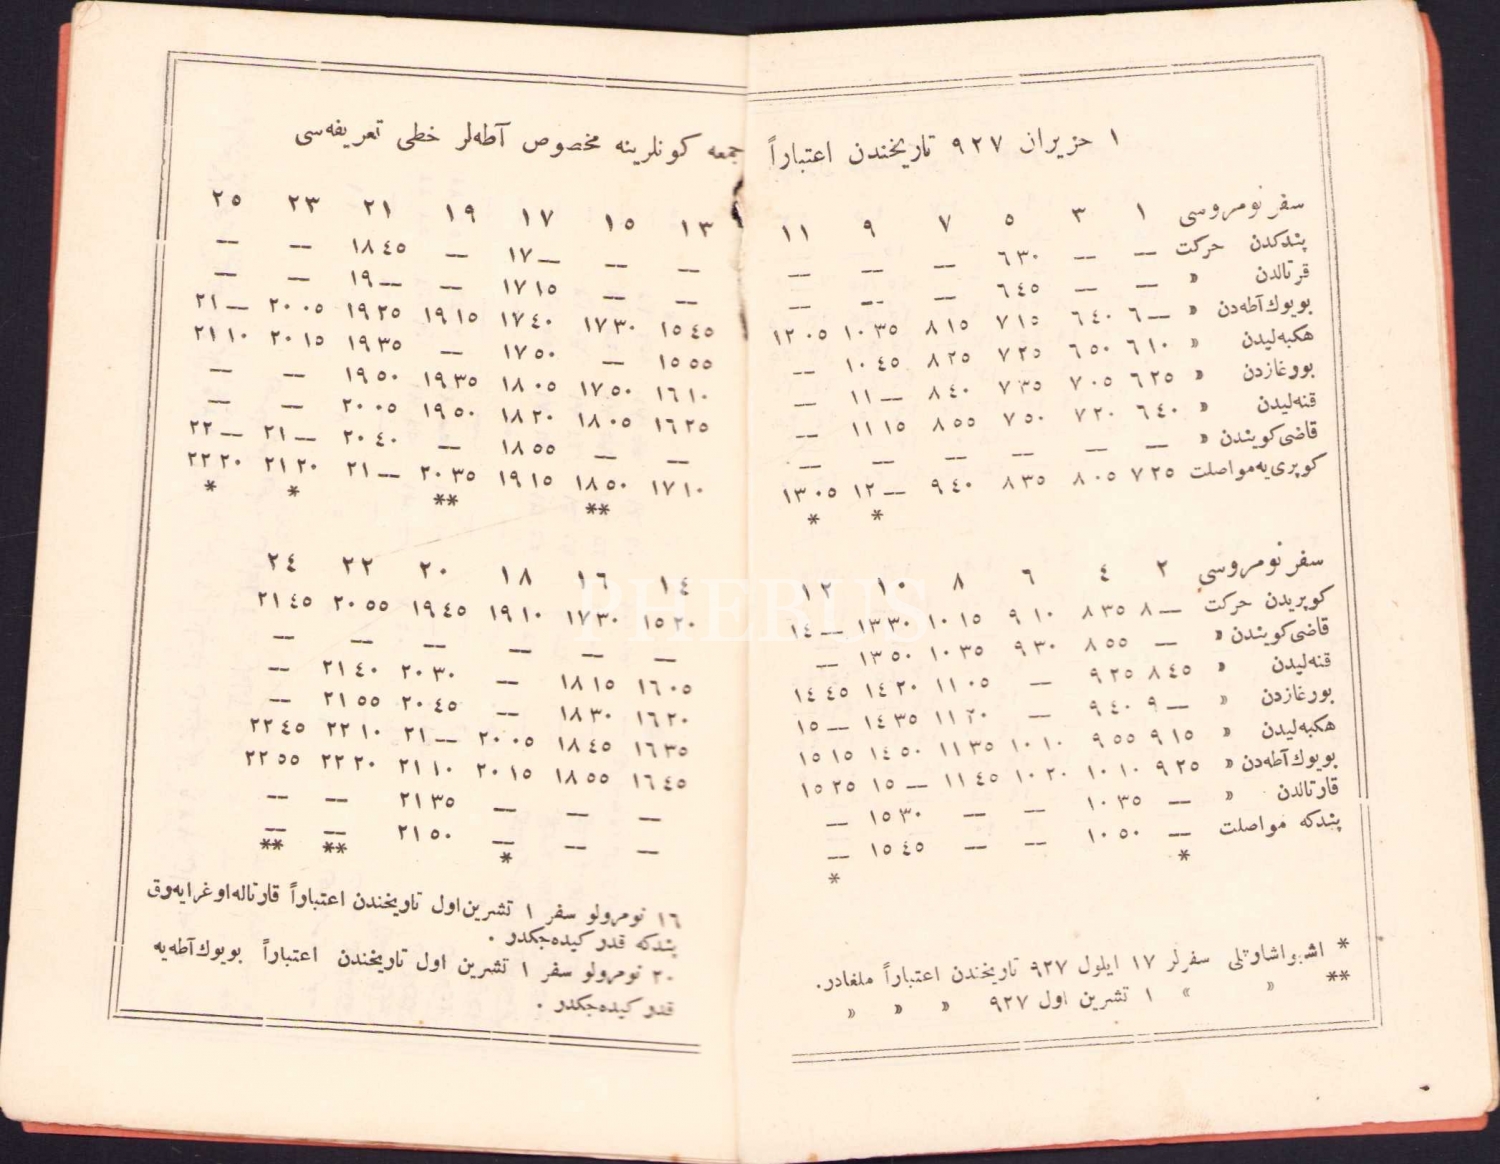 ١ حزيران ٩٢٧ تاريخندن اعتباراً جمعه كونلرينه مخصوص آطه‌لر خطى تعريفه‌سى
سفر نومروسى ١ ٣ ٥ ٧ ٩ ١١ ١٣ ١٥ ١٧ ١٩ ٢١ ٢٣ ٢٥
پندكدن حركت — — ٦ ٣٠ — — — — — ١٧ — — ١٨ ٤٥ — —
قرتالدن » — — ٦ ٤٥ — — — — — ١٧ ١٥ — ١٩ — — —
بويوك‌آطه‌دن » ٦ — ٦ ٤٠ ٧ ١٥ ٨ ١٥ ١٠ ٣٥ ١٢ ٠٥ ١٥ ٤٥ ١٧ ٣٠ ١٧ ٤٠ ١٩ ١٥ ١٩ ٢٥ ٢٠ ٠٥ ٢١ —
هكبه‌ليدن » ٦ ١٠ ٦ ٥٠ ٧ ٢٥ ٨ ٢٥ ١٠ ٤٥ — ١٥ ٥٥ — ١٧ ٥٠ — ١٩ ٣٥ ٢٠ ١٥ ٢١ ١٠
بورغازدن » ٦ ٢٥ ٧ ٠٥ ٧ ٣٥ ٨ ٤٠ ١١ — — ١٦ ١٠ ١٧ ٥٠ ١٨ ٠٥ ١٩ ٣٥ ١٩ ٥٠ — —
قنه‌ليدن » ٦ ٤٠ ٧ ٢٠ ٧ ٥٠ ٨ ٥٥ ١١ ١٥ — ١٦ ٢٥ ١٨ ٠٥ ١٨ ٢٠ ١٩ ٥٠ ٢٠ ٠٥ — —
قاضى‌كويندن » — — — — — — — — ١٨ ٥٥ — ٢٠ ٤٠ ٢١ — ٢٢ —
كوپرى‌يه‌مواصلت ٧ ٢٥ ٨ ٠٥ ٨ ٣٥ ٩ ٤٠ ١٢ — ١٣ ٠٥ ١٧ ١٠ ١٨ ٥٠ ١٩ ١٥ ٢٠ ٣٥ ٢١ — ٢١ ٢٠ ٢٢ ٢٠
* * ** ** * *
سفر نومروسى ٢ ٤ ٦ ٨ ١٠ ١٢ ١٤ ١٦ ١٨ ٢٠ ٢٢ ٢٤
كوپريدن حركت ٨ — ٨ ٣٥ ٩ ١٠ ١٠ ١٥ ١٣ ٣٠ ١٤ — ١٥ ٢٠ ١٧ ٣٠ ١٩ ١٠ ١٩ ٤٥ ٢٠ ٥٥ ٢١ ٤٥
قاضى‌كويندن » — ٨ ٥٥ ٩ ٣٠ ١٠ ٣٥ ١٣ ٥٠ — — — — — — —
قنه‌ليدن » ٨ ٤٥ ٩ ٢٥ — ١١ ٠٥ ١٤ ٢٠ ١٤ ٤٥ ١٦ ٠٥ ١٨ ١٥ — ٢٠ ٣٠ ٢١ ٤٠ —
بورغازدن » ٩ — ٩ ٤٠ — ١١ ٢٠ ١٤ ٣٥ ١٥ — ١٦ ٢٠ ١٨ ٣٠ — ٢٠ ٤٥ ٢١ ٥٥ —
هكبه‌ليدن » ٩ ١٥ ٩ ٥٥ ١٠ ١٠ ١١ ٣٥ ١٤ ٥٠ ١٥ ١٥ ١٦ ٣٥ ١٨ ٤٥ ٢٠ ٠٥ ٢١ — ٢٢ ١٠ ٢٢ ٤٥
بويوك‌آطه‌دن » ٩ ٢٥ ١٠ ١٠ ١٠ ٢٠ ١١ ٤٥ ١٥ — ١٥ ٢٥ ١٦ ٤٥ ١٨ ٥٥ ٢٠ ١٥ ٢١ ١٠ ٢٢ ٢٠ ٢٢ ٥٥
قارتالدن » — ١٠ ٣٥ — — ١٥ ٣٠ — — — — ٢١ ٣٥ — —
پندكه مواصلت — ١٠ ٥٠ — — ١٥ ٤٥ — — — — ٢١ ٥٠ — —
* * * ** **
* اشبو اشارتلى سفرلر ١٧ ايلول ٩٢٧ تاريخندن اعتباراً ملغادر.
** » » ١ تشرين اول ٩٢٧ » » »
١٦ نومرولو سفر ١ تشرين‌اول تاريخندن اعتباراً قارتاله‌اوغرايه‌رق
پندكه قدر كيده‌جكدر .
٢٠ نومرولو سفر ١ تشرين اول تاريخندن اعتباراً بويوك‌آطه‌يه
قدر كيده‌جكدر .
PHEBUS